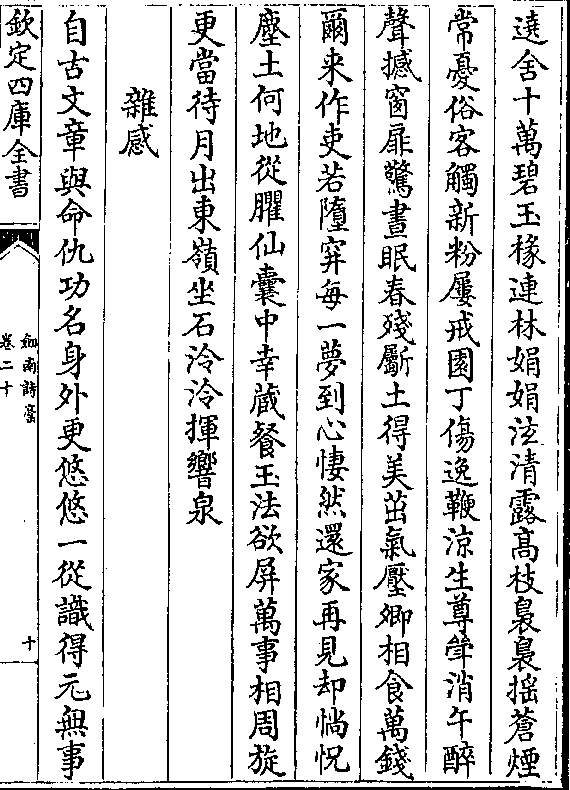 遶舍十萬碧玉椽連林娟娟泫清露髙枝裊裊揺蒼煙
常憂俗客觸新粉屢戒園丁傷逸鞭涼生尊斝消午醉
聲撼窗扉驚晝眠春殘斸土得美茁氣壓卿相食萬錢
爾来作吏若墮穽毎一夢到心悽然還家再見却惝怳
塵土何地從臞仙囊中幸蔵餐玉法欲屏萬事相周旋
更當待月出東嶺坐石泠泠揮響泉
雜感
自古文章與命仇功名身外更悠悠一從識得元無事
欽定四庫全書
劔南詩稾
卷二十
十